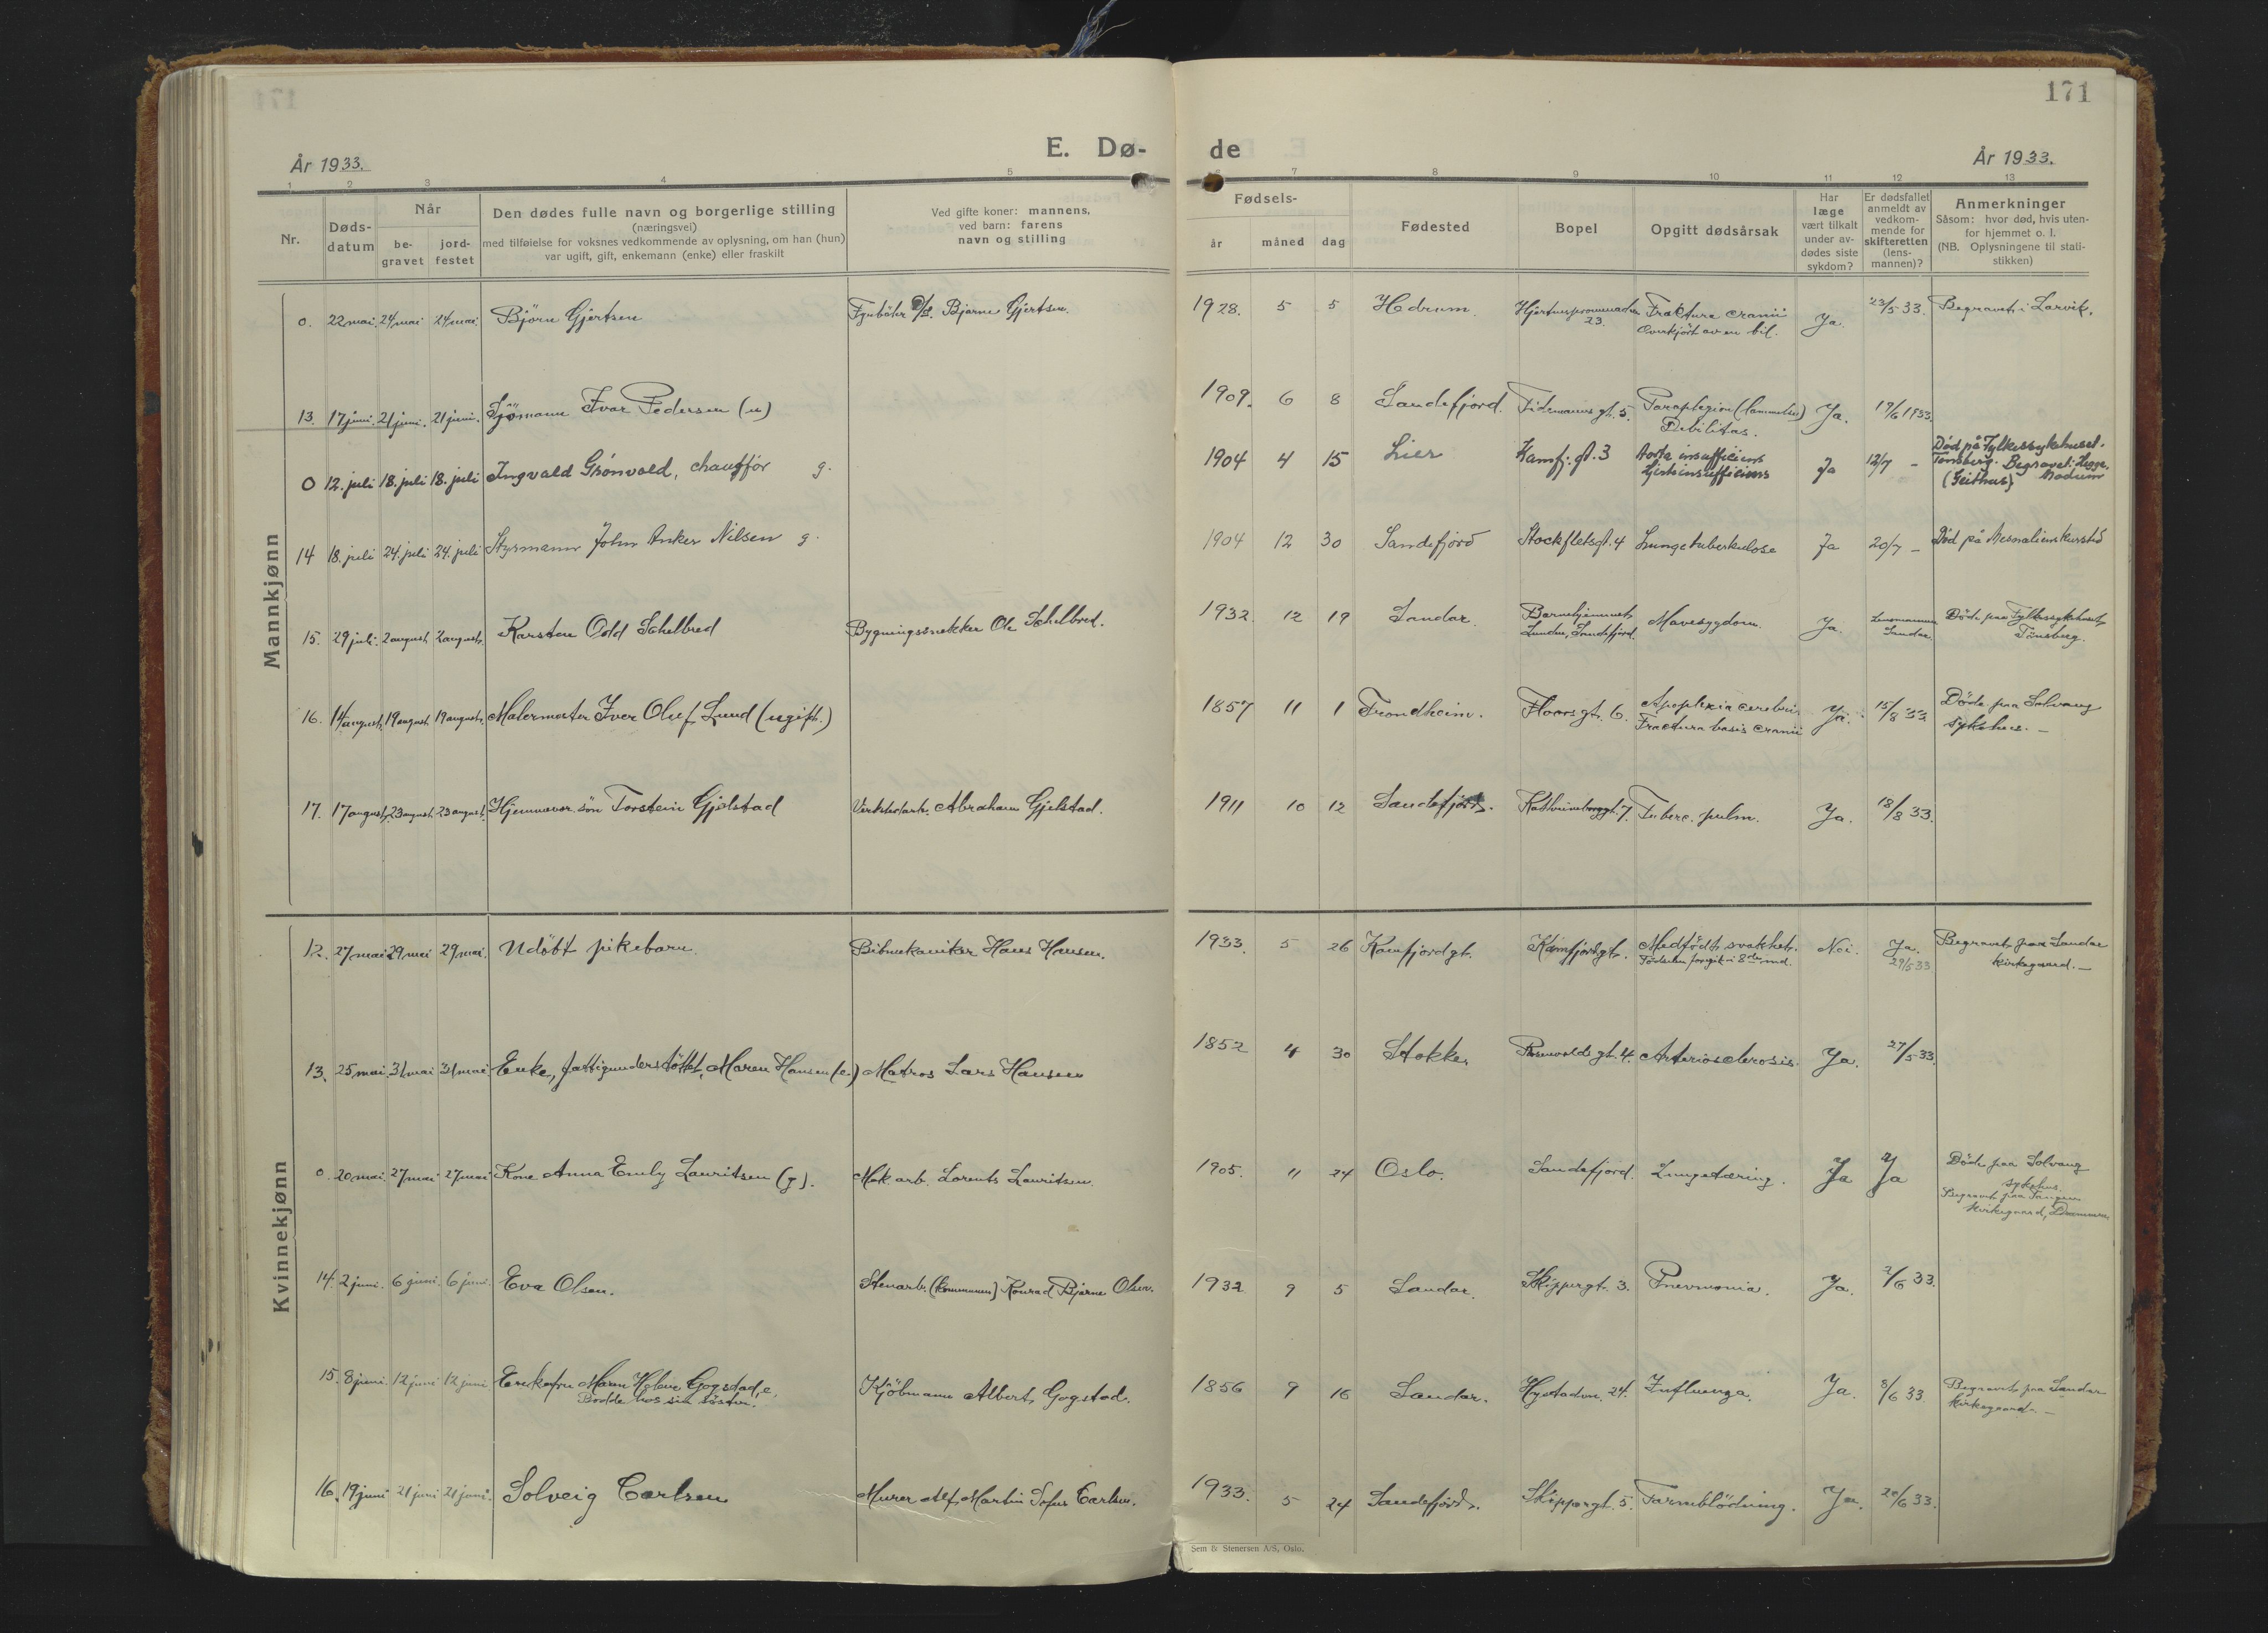 171
E. Dø- de
År 1933.
År 1933.
1 2 3 4 5 6 7 8 9 10 11 12 13
Nr.
Døds-
datum
Når
be-
gravet
jord-
festet
Den dødes fulle navn og borgerlige stilling
(næringsvei)
med tilføielse for voksnes vedkommende av oplysning, om han (hun)
var ugift, gift, enkemann (enke) eller fraskilt
Ved gifte koner: mannens,
ved barn: farens
navn og stilling
Fødsels-
år måned dag
Fødested
Bopel
Opgitt dødsårsak
Har
læge
vært tilkalt
under av-
dødes siste
sykdom?
Er dødsfallet
anmeldt av
vedkom-
mende for
skifteretten
(lens-
mannen)?
Anmerkninger
Såsom: hvor død, hvis uten-
for hjemmet o. l.
(NB. Oplysningene til stati-
stikken)
Mannkjønn
0. 22 mai. 24 mai 24 mai. Björn Gjertsen Fyrböter Bjarne Gjertsen. 1928. 5 5 Hedrum. Hjertnespromenaden 23. Fraktura cranii Ja. 23/5 33. Begravet i Larvik.
Overkjört av en bil.
13. 17 juni. 21 juni. 21 juni. Sjömann Ivar Pedersen (u) 1909. 6 8 Sandefjord. Tidemanns gt. 5. Paraplegien (lammelse) Ja. 19/6 1933.
Debilitas.
0 12. juli 18. juli 18. juli Ingvald Grönvold, chaufför g. 1904 4 15 Lier Kamfj. gt. 3 Aorta insufficiens Ja 12/7 - Död på Fylkessykehuset.
Hjerteinsufficiens Tönsberg. Begravet: Heggen, Modum
(Geithus)
14 18. juli 24. juli 24. juli Styrmann John Anker Nilsen g. 1904 12 30 Sandefjord Stockfletsgt. 4 Lungetuberkulose Ja 20/7 - Död på Mesnaliens kursted
15. 29 juli. 2 august. 2 august. Karsten Odd Schelbred Bygningssnekker Ole Schelbred. 1932 12 19 Sandar. Barnehjemmet Mavesygdom. Ja. Lensmannen Döde paa Fylkessykehuset
Lunden, Sandefjord. Sandar. Tönsberg.
16. 14 august. 19 august. 19 august. Malermester Iver Oluf Lund (ugift.) 1857 11 1 Trondheim. Floors gt. 6. Apoplexia cerebri Ja. 15/8 33 Döde paa Solvang
Fractura basis cranii sykehus. -
17. 17 august. 23 august. 23 august. Hjemmevær. sön Torstein Gjelstad Verkstedarb. Abraham Gjelstad. 1911 10 12 Sandefjord. 7. Tuberc. pulm. Ja. 18/8 33.
Kvinnekjønn
12. 27 mai 29 mai 29 mai. Udöbt pikebarn. Bilmekaniker Hans Hansen. 1933. 5 26 Kamfjordgt. Kamfjordgt. Medfödt svakhet. Nei. Ja. Begravet paa Sandar
Födselen foregik i 8de md. 29/5 33 kirkegaard. -
13. 25 mai 31 mai 31 mai Enke, fattigunderstöttet, Maren Hansen (e.) Matros Lars Hansen 1852 4 30 Stokke. Rosenvolds gt. 4. Arteriosclerosis. Ja. 27/5 33.
0. 20 mai. 27 mai 27 mai Kone Anna Emily Lauritsen (g). Mek. arb. Lorents Lauritsen. 1905. 11 24 Oslo. Sandefjord. Lungetæring. Ja Ja Döde paa Solvang
sykehus.
Begravet paa Tangen
kirkegaard, Drammen.
14. 2 juni. 6 juni. 6 juni. Eva Olsen. Stenarb. (kommunen) Konrad Bjarne Olsen. 1932 9 5 Sandar. Skippergt. 3. Pnevmonia. Ja. 2/6 33.
15. 8 juni. 12 juni 12 juni Enkefru Maren Helene Gogstad, e. Kjöbmann Albert Gogstad. 1856 9 16 Sandar. Hystadvn. 24. Influenza. Ja. 8/6 33. Begravet paa Sandar
Bodde hos sin söster. kirkegaard. -
16. 19 juni 21 juni 21 juni. Solveig Carlsen Murer Alf Martin Sofus Carlsen. 1933. 5 24 Sandefjord. Skippergt. 5. Tarmblödning. Ja. 20/6 33.
Sem & Stenersen A/S, Oslo.